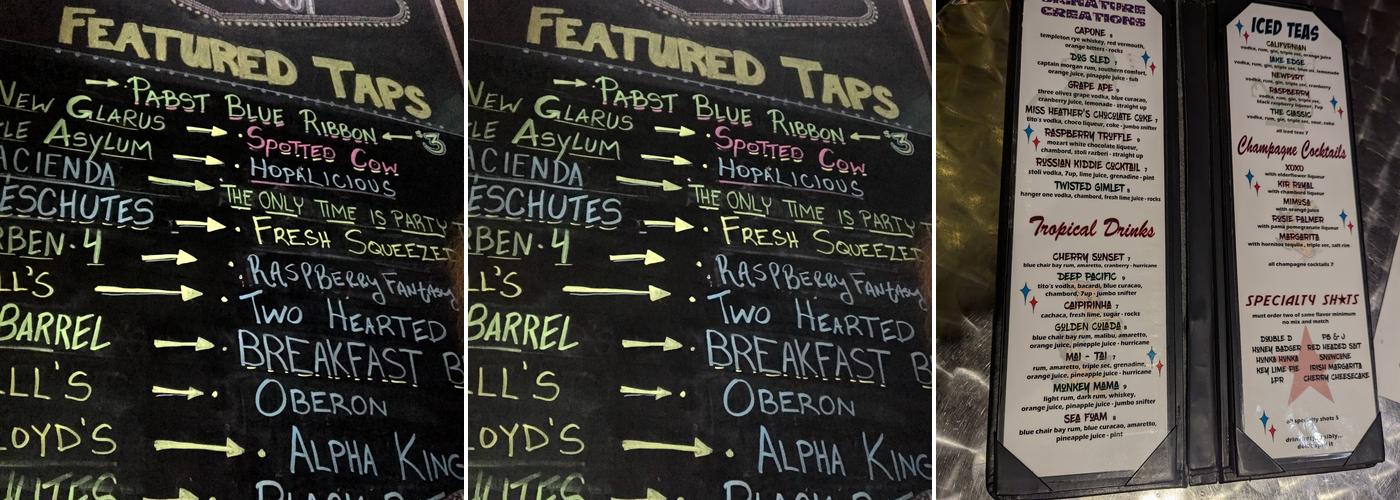 FEATURED TAPS
PABST BLUE RIBBON $3
NEW GLARUS SPOTTED COW
ASYLUM HOPALICIOUS
ACIENDA THE ONLY TIME IS PARTY T
ESCHUTES FRESH SQUEEZED
RBEN·4 RASPBERRY FANTASY
LL'S TWO HEARTED
BARREL BREAKFAST B
LL'S OBERON
LOYD'S ALPHA KING
FEATURED TAPS
PABST BLUE RIBBON $3
NEW GLARUS SPOTTED COW
LE ASYLUM HOPALICIOUS
ACIENDA THE ONLY TIME IS PARTY T
ESCHUTES FRESH SQUEEZED
RBEN·4 RASPBERRY FANTASY
LL'S TWO HEARTED
BARREL BREAKFAST B
LL'S OBERON
OYD'S ALPHA KING
SIGNATURE
CREATIONS
CAPONE 8
templeton rye whiskey, red vermouth,
orange bitters - rocks
DOG SLED 7
captain morgan rum, southern comfort,
orange juice, pineapple juice - tub
GRAPE APE 9
three olives grape vodka, blue curacao,
cranberry juice, lemonade - straight up
MISS HEATHER'S CHOCOLATE COKE 7
tito's vodka, choco liqueur, coke - jumbo snifter
RASPBERRY TRUFFLE 9
mozart white chocolate liqueur,
chambord, stoli razberi - straight up
RUSSIAN KIDDIE COCKTAIL 7
stoli vodka, 7up, lime juice, grenadine - pint
TWISTED GIMLET 8
hanger one vodka, chambord, fresh lime juice - rocks
Tropical Drinks
CHERRY SUNSET 7
blue chair bay rum, amaretto, cranberry - hurricane
DEEP PACIFIC 9
tito's vodka, bacardi, blue curacao,
chambord, 7up - jumbo snifter
CAIPIRINHA 7
cachaca, fresh lime, sugar - rocks
GOLDEN COLADA 8
blue chair bay rum, malibu, amaretto,
orange juice, pineapple juice - hurricane
MAI - TAI 7
rum, amaretto, triple sec, grenadine,
orange juice, pineapple juice - hurricane
MONKEY MAMA 9
light rum, dark rum, whiskey,
orange juice, pineapple juice - jumbo snifter
SEA FOAM 8
blue chair bay rum, blue curacao, amaretto,
pineapple juice - pint
ICED TEAS
CALIFORNIAN
vodka, rum, gin, triple sec, orange juice
LAKE EDGE
vodka, rum, gin, triple sec, blue, lemonade
NEWPORT
vodka, rum, gin, triple sec, cranberry
RASPBERRY
vodka, rum, gin, triple sec,
black raspberry liqueur, 7up
THE CLASSIC
vodka, rum, gin, triple sec, sour, coke
all iced teas 7
Champagne Cocktails
XOXO
with elderflower liqueur
KIR ROYAL
with chambord liqueur
MIMOSA
with orange juice
ROSIE PALMER
with pama pomegranate liqueur
MARGARITA
with hornitos tequila, triple sec, salt rim
all champagne cocktails 7
SPECIALTY SHOTS
must order two of same flavor minimum
no mix and match
DOUBLE D PB & J
HONEY BADGER RED HEADED SLUT
HUNKA HUNKA SNOWCONE
KEY LIME PIE IRISH MARGARITA
LPR CHERRY CHEESECAKE
all specialty shots 5